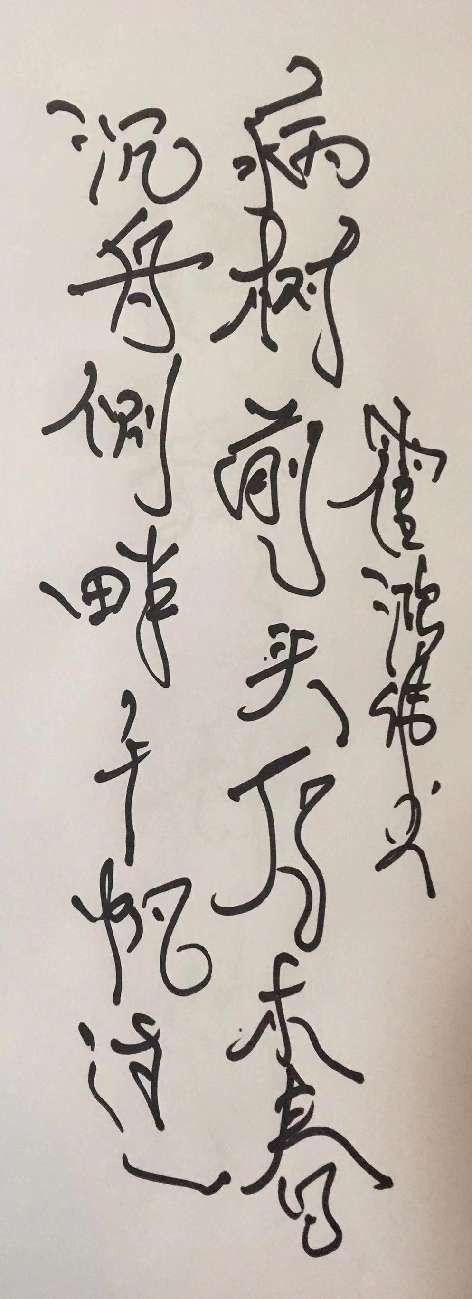 沉舟侧畔千帆过
病树前头万木春
鸿伟书